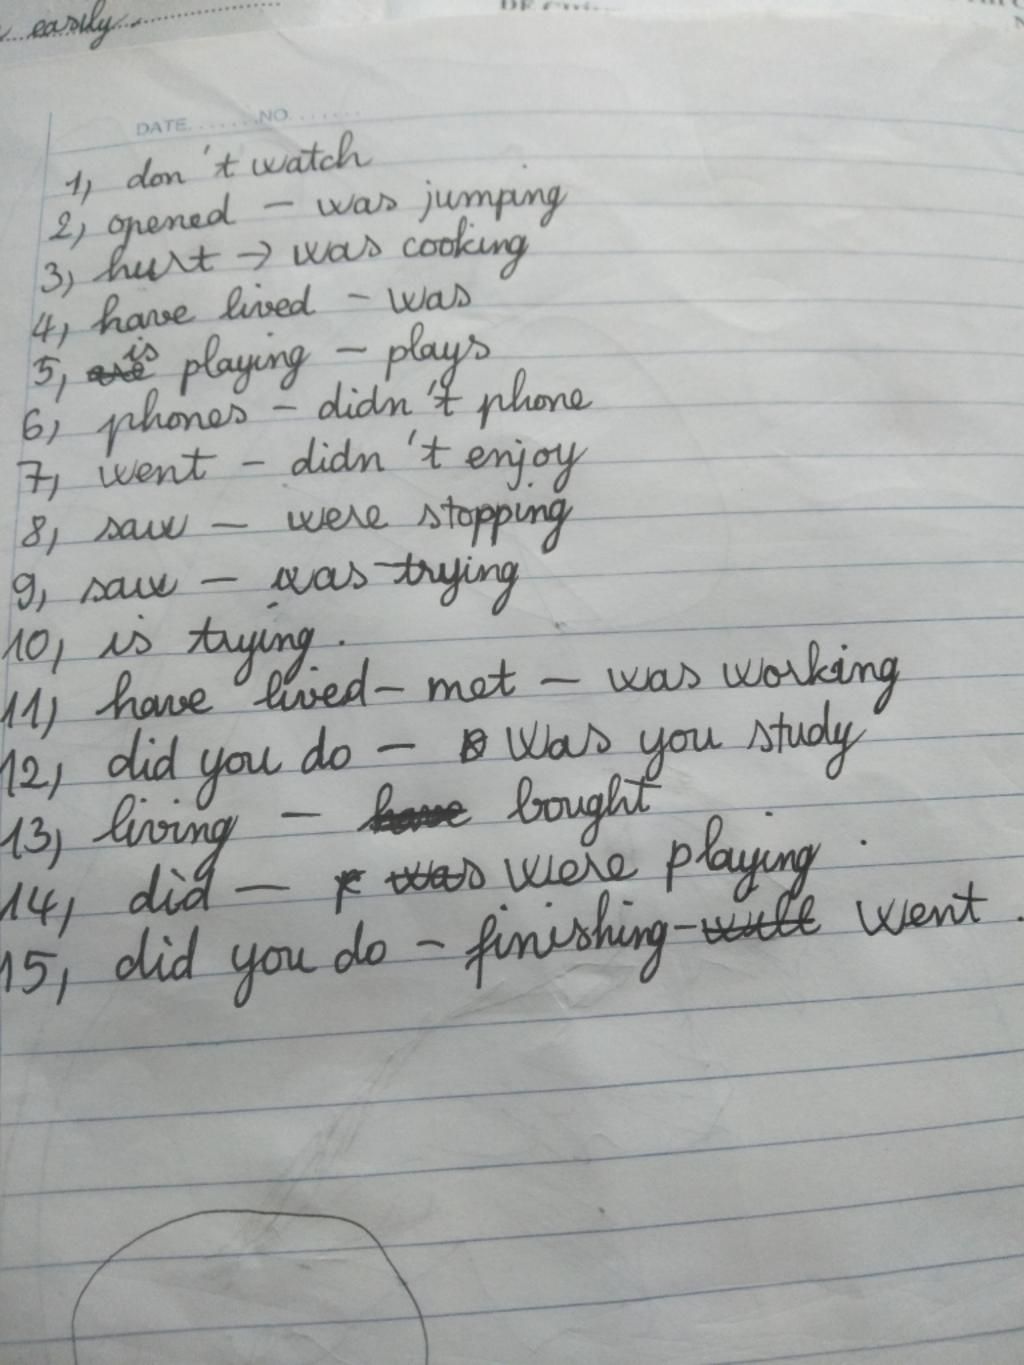 easily.
DATE.......NO.......
1, don't watch
2, opened - was jumping
3, hurt → was cooking
4, have lived - was
5, is playing - plays
6, phones - didn't phone
7, went - didn't enjoy
8, saw - were stopping
9, saw - was trying
10, is trying.
11, have lived - met - was working
12, did you do - was you study
13, living - bought
14, did - were playing.
15, did you do - finishing - went.